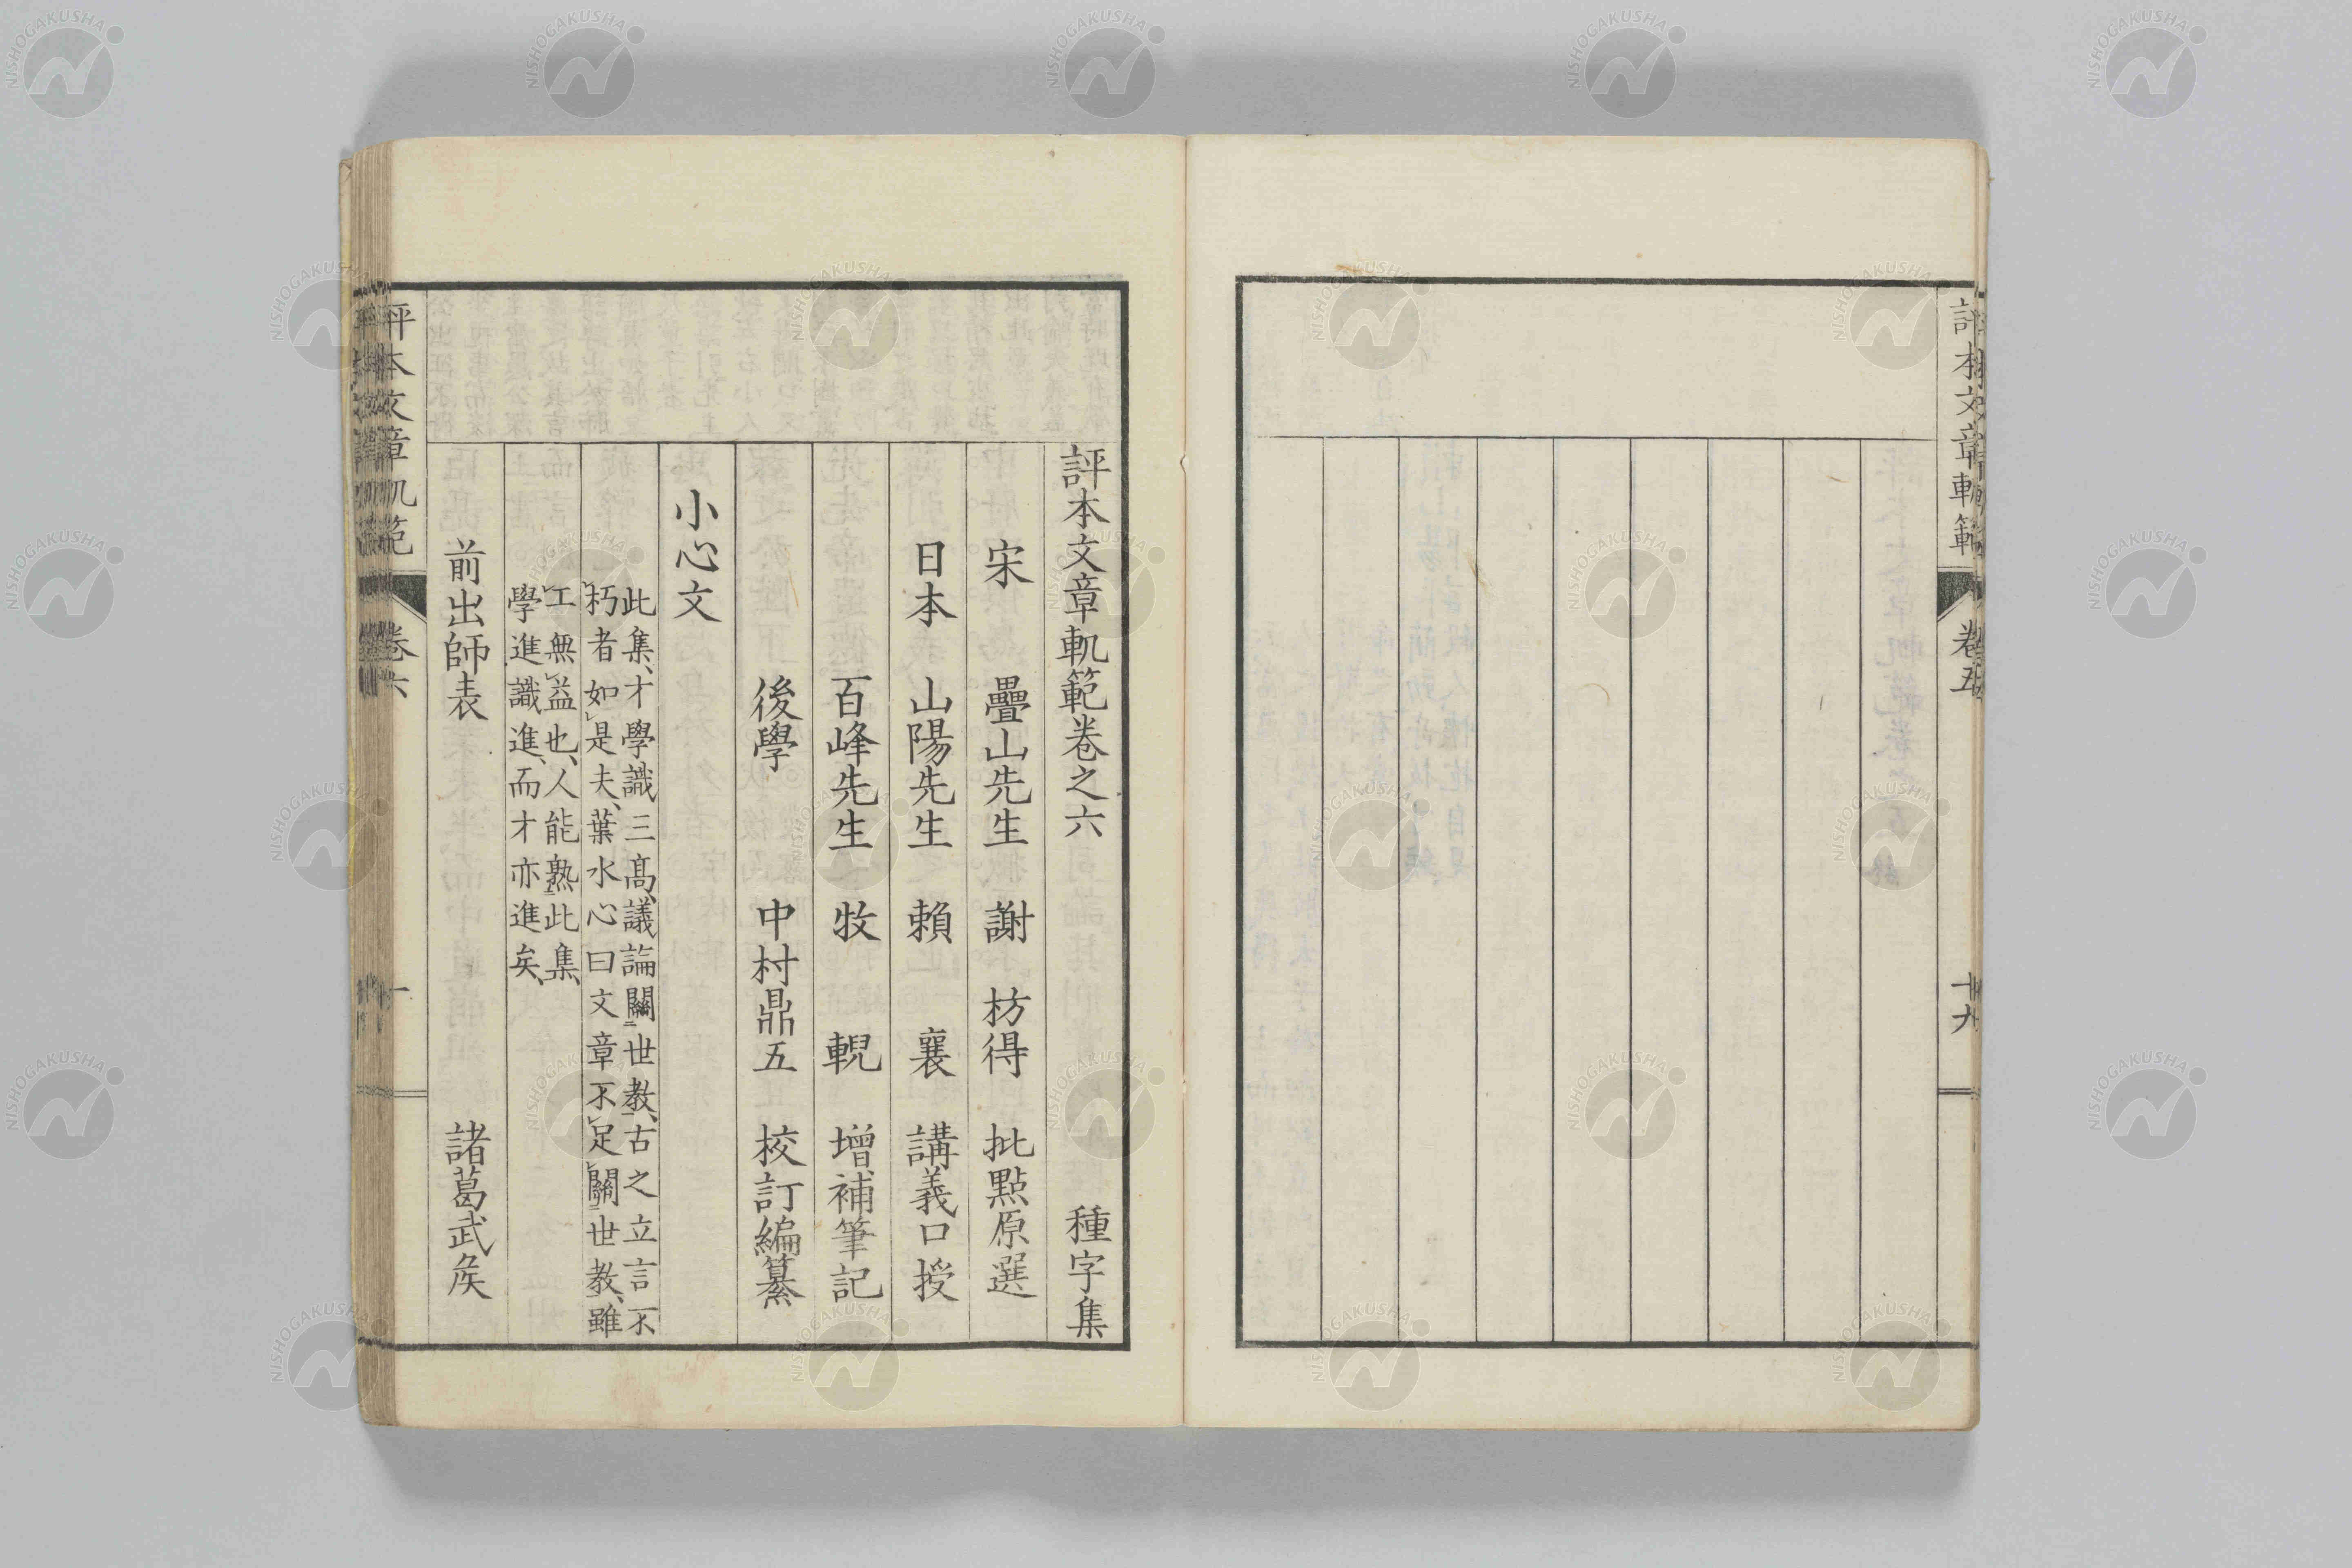 評本文章軌範
卷五
十九
評本文章軏範卷之六　種字集
宋　疊山先生　謝　枋得　批點原選
日本　山陽先生　賴　襄　講義口授
百峰先生　牧　輗　增補筆記
後學　中村鼎五　校訂編纂
小心文
此集、才學識三高、議論關世教、古之立言不
朽者如是夫、葉水心曰文章不足關世教、雖
工無益也、人能熟此集、
學進識進、而才亦進矣、
前出師表　諸葛武矦
評本文章軌範
卷六
一
NISHOGAKUSHA